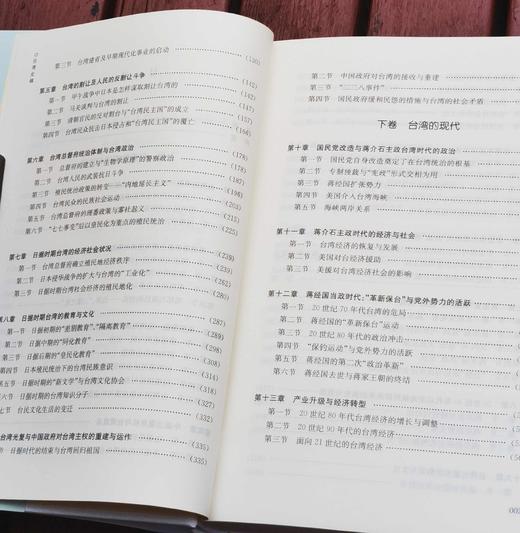 第三节 台湾建省及早期现代化事业的启动 (120)
第五章 台湾的割让及人民的反割让斗争
第一节 甲午战争中日本是怎样谋取割让台湾的
第二节 马关谈判与台湾的割让
第三节 清朝官民的反对割台与“台湾民主国”的成立
第四节 台湾民众抗击日本侵占和“台湾民主国”的覆亡
第六章 台湾总督府统治体制与台湾政治
第一节 台湾总督府的建立与“生物学原理”的警察政治
第二节 台湾人民的武装抗日斗争
第三节 殖民统治政策的转变——“内地延长主义”
第四节 台湾民众的民族社会运动
第五节 台湾总督府的理番政策与雾社起义
第六节 “七七事变”后以皇民化为重点的殖民统治 (225)
第七章 日据时期台湾的经济社会状况
第一节 台湾总督府确立殖民地经济秩序
第二节 日本侵华战争的扩大与台湾的“工业化”
第三节 日据时期台湾社会经济的殖民地化
第八章 日据时期台湾的教育与文化 (287)
第一节 日据初期的“差别教育”、“隔离教育” (287)
第二节 日据中期的“同化教育” (289)
第三节 日据后期的“皇民化教育”
第四节 日本殖民统治下的台湾民族意识
第五节 日据时期的“新文学”与台湾文化协会
六节 日据时期的台湾知识分子 (327)
七节 台民文化生活的变迁 (332)
台湾光复与中国政府对台湾主权的重建与运作 (335)
节 日据时代的结束与台湾回归祖国 (335)
第二节 中国政府对台湾的接收与重建
第三节 “二二八事件”
第四节 国民政府缓和民怨的措施与台湾的社会矛盾
下卷 台湾的现代
第十章 国民党改造与蒋介石主政台湾时代的政治
第一节 国民党自身改造奠定了在台湾统治的根基
第二节 专制独裁与“宪政”形式交相为用
第三节 蒋经国扩张势力
第四节 美国介入台湾海峡
第五节 海峡两岸关系
第十一章 蒋介石主政时代的经济与社会
第一节 台湾经济的恢复与发展
第二节 美国对台经济援助
第三节 美援对台湾经济社会的影响
第十二章 蒋经国当政时代：“革新保台”与党外势力的活跃
第一节 20世纪70年代台湾的危局
第二节 蒋经国的“革新保台”运动
第三节 20世纪80年代的政治冲击
第四节 “保钓运动”与党外势力的活跃
第五节 蒋经国的第二次“政治革新”
第六节 蒋经国去世与蒋家王朝的终结
第十三章 产业升级与经济转型
第一节 20世纪80年代台湾经济的增长与调整
第二节 20世纪90年代的台湾经济
第三节 面向21世纪的台湾经济